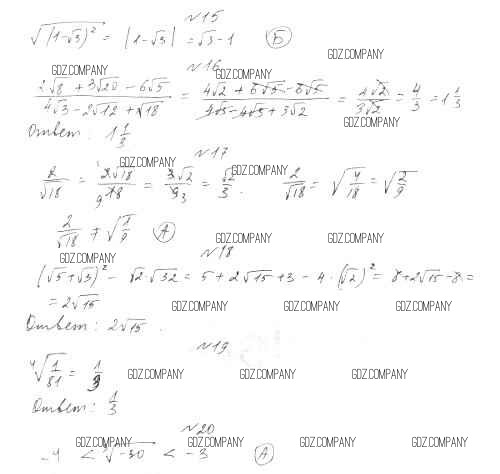 N15
√(1-√3)² = |1-√3| = √3-1 Б
GDZ.COMPANY
GDZ.COMPANY N16 GDZ.COMPANY
(2√8 + 3√20 - 6√5)/(4√3 - 2√12 + √18) = (4√2 + 6√5 - 6√5)/(4√3 - 4√3 + 3√2) = 4√2/3√2 = 4/3 = 1 1/3
GDZ.COMPANY
Ответ: 1 1/3
GDZ.COMPANY N17 GDZ.COMPANY
2/√18 = 2√18/18 = 3√2/9 = √2/3. 2/√18 = √(4/18) = √(2/9)
GDZ.COMPANY GDZ.COMPANY GDZ.COMPANY
2/√18 ≠ √(2/9) А
GDZ.COMPANY GDZ.COMPANY
GDZ.COMPANY N18 GDZ.COMPANY
(√5+√3)² - √2·√32 = 5 + 2√15 + 3 - 4·(√2)² = 8+2√15-8 =
= 2√15 GDZ.COMPANY GDZ.COMPANY GDZ.COMPANY
Ответ: 2√15.
N19
⁴√(1/81) = 1/3 GDZ.COMPANY GDZ.COMPANY GDZ.COMPANY
Ответ: 1/3
N20
GDZ.COMPANY GDZ.COMPANY GDZ.COMPANY GDZ.COMPANY
-4 < ³√-30 < -3 А